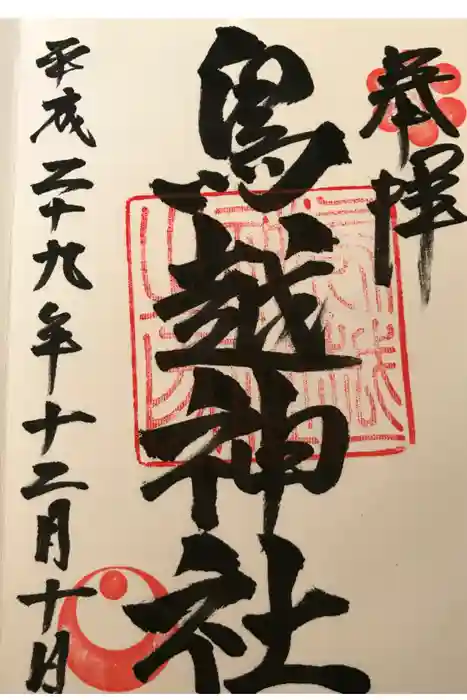 奉拝
鳥越神社
平成二十九年十二月十日